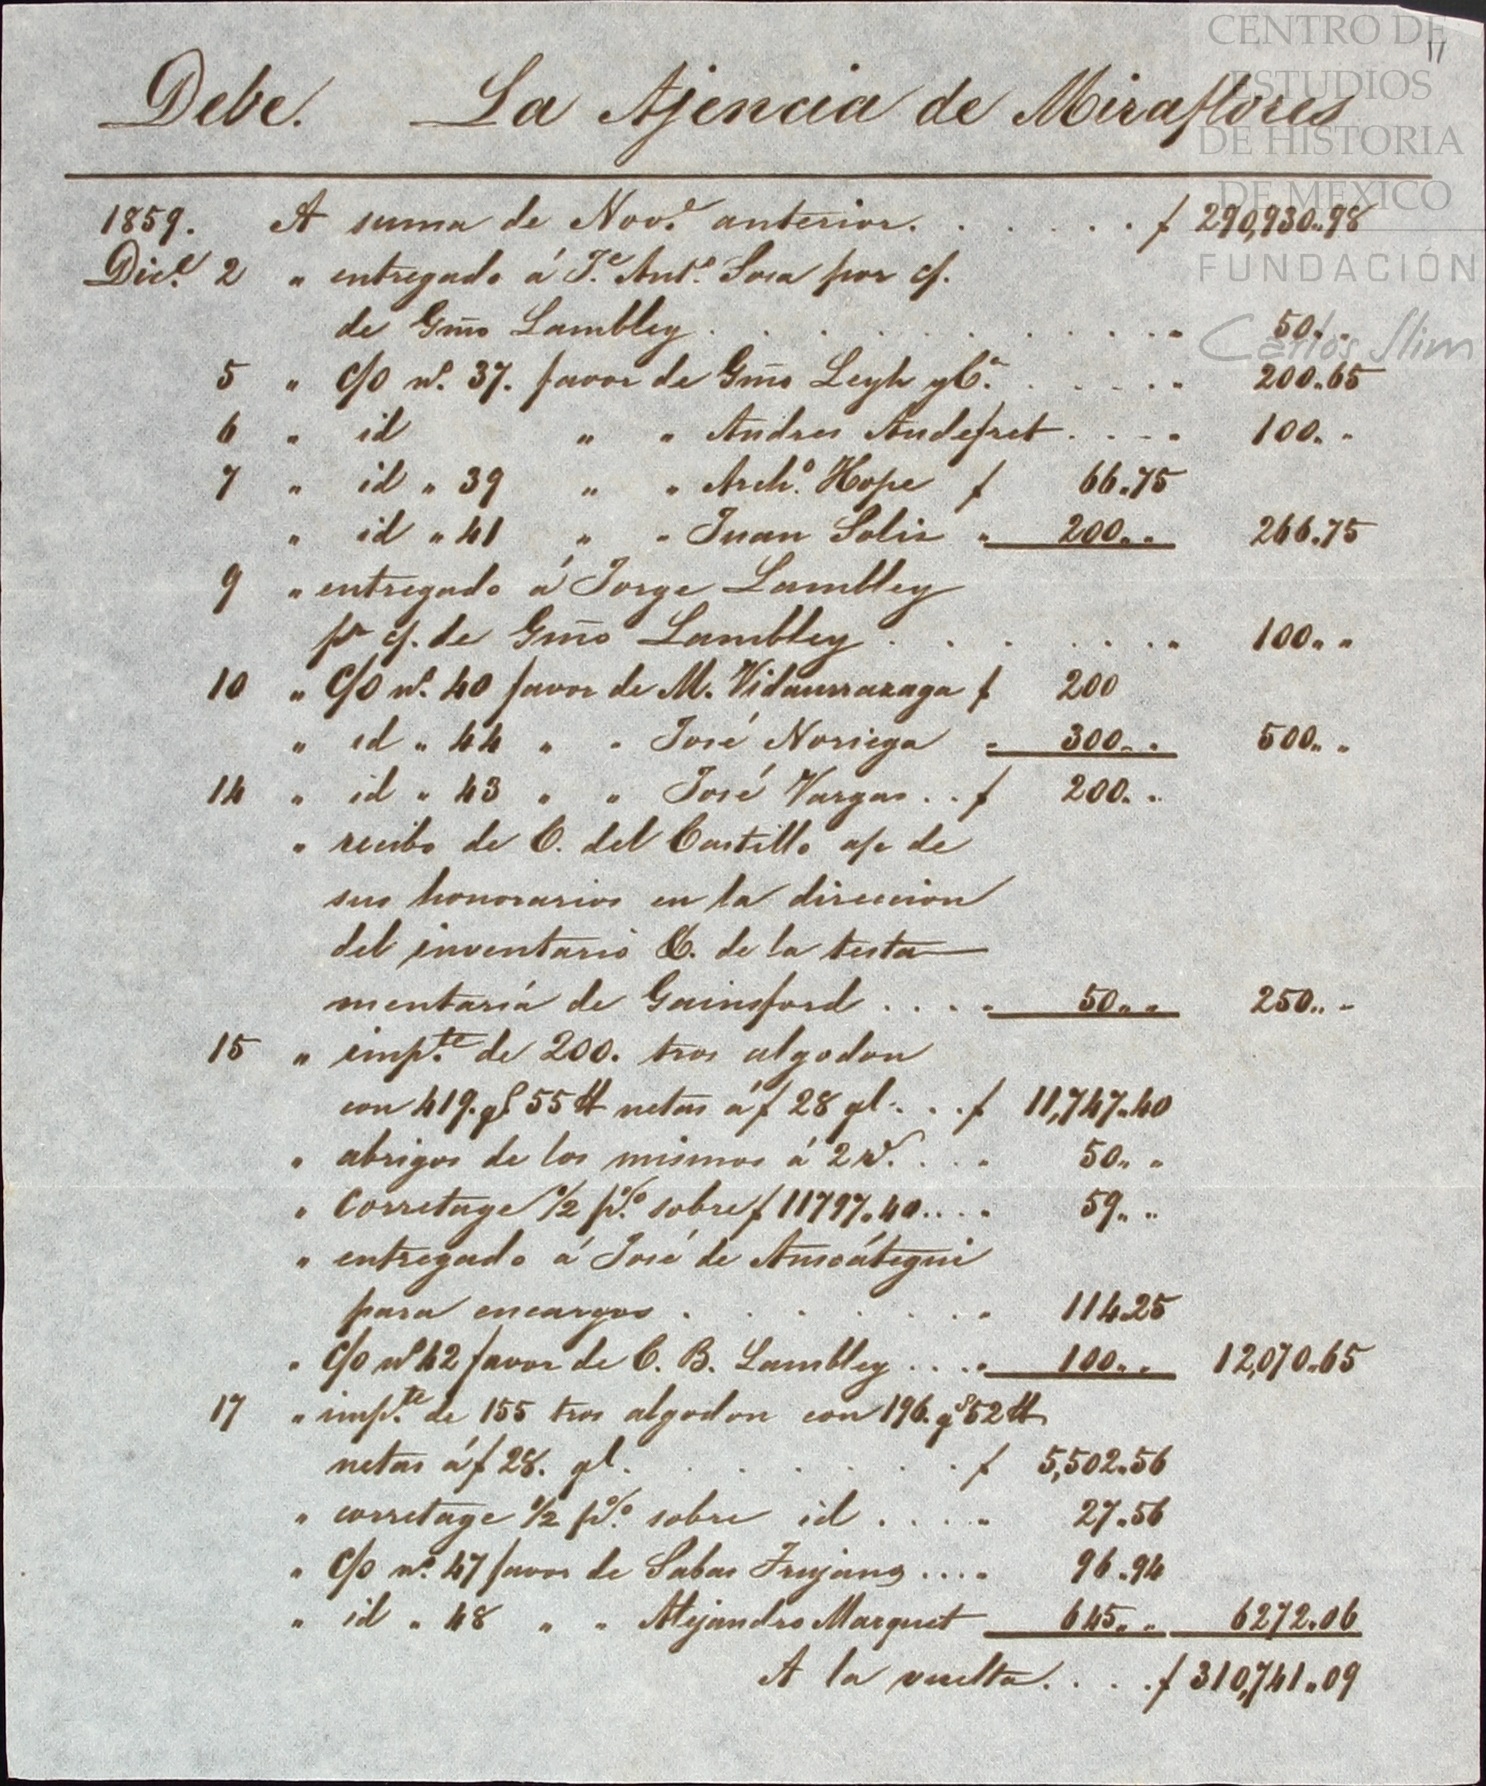 CENTRO DE
ESTUDIOS
DE HISTORIA
DE MÉXICO
FUNDACIÓN
Carlos Slim
17
Debe. La Ajencia de Miraflores
1859. A suma de Nov.e anterior. . . . . . . $ 290,930.,98
Dic.e 2 " entregado á J.e Ant.o Sosa por c/.
de Gm̃o Lambley . . . . . . . . . " 50.. "
5 " C/O n.o 37. favor de Gm̃o Leyh y C.a . . . . " 200.,65
6 " id " " Andres Audefret . . . " 100.. "
7 " id " 39 " " Arch.o Hope $ 66.,75
" id " 41 " " Juan Solis " 200.. " 266.,75
9 " entregado á Jorge Lambley
p.r c/. de Gm̃o Lambley . . . . . . " 100.. "
10 " C/O n.o 40 favor de M. Vidaurrazaga $ 200
" id " 44 " " José Noriega " 300.. " 500.. "
14 " id " 43 " " José Vargas . . $ 200.. "
" recibo de C. del Castillo a/c de
sus honorarios en la direccion
del inventario &. de la testa
mentaría de Gainsford . . . . " 50.. " 250.. "
15 " imp.te de 200. tros algodon
con 419. qs 55 ℔ netas á $ 28 ql. . . . $ 11,747.,40
" abrigos de los mismos á 2 r.s . . . " 50.. "
" Corretage 1/2 p.%o sobre $ 11797.,40 . . . . " 59.. "
" entregado á José de Ansoátegui
para encargos . . . . . . . " 114.25
" C/O n.o 42 favor de C. B. Lambley . . . . " 100.. " 12,070.,65
17 " imp.te de 155 tros algodon con 196. qs 52 ℔
netas á $ 28. ql. . . . . . . . $ 5,502.,56
" corretage 1/2 p.%o sobre id . . . . " 27.,56
" C/O n.o 47 favor de Sabas Trujano . . . . " 96.,94
" id " 48 " " Alejandro Marquet 645.. " 6272.,06
A la vuelta. . . . $ 310,741.,09